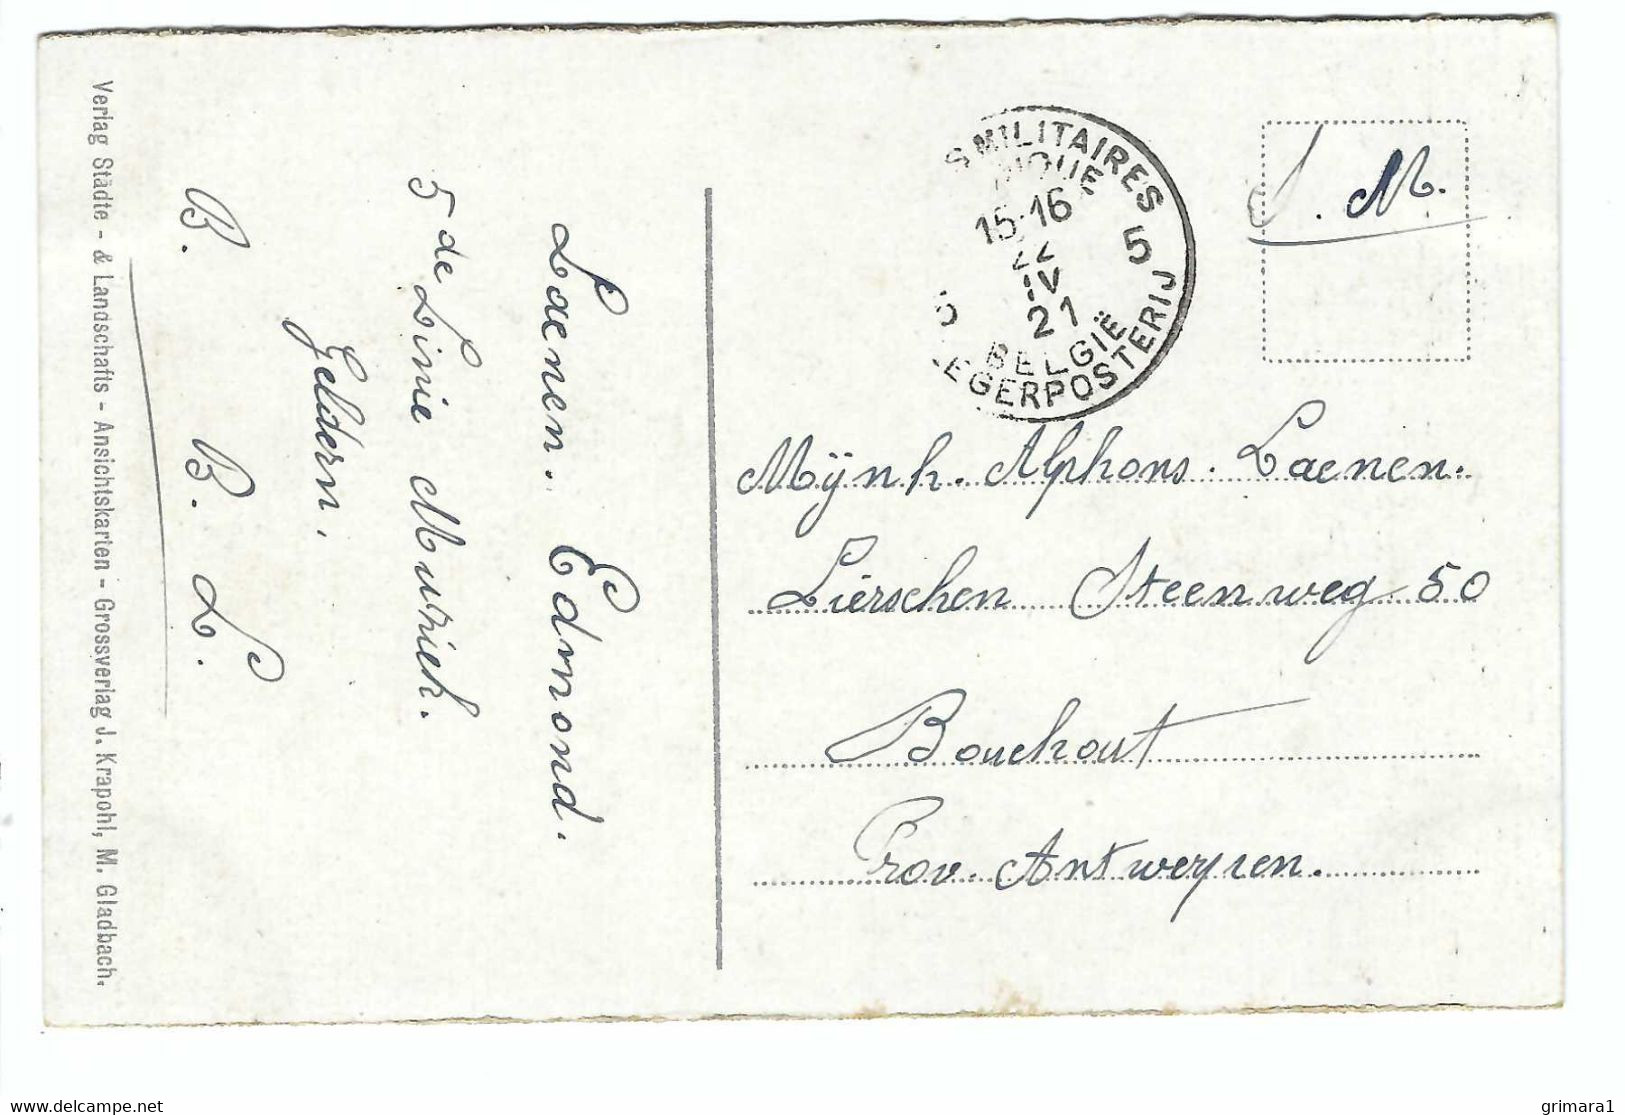 Laenen. Edmond.
5 de Linie Muziek.
Geldern.
B. B. L.
Verlag Städte - & Landschafts - Ansichtskarten - Grossverlag J. Krapohl, M. Gladbach.
S MILITAIRES
IQUE
15-16
22
IV
21
5 5
BELGIË
LEGERPOSTERIJ
S. M.
Mÿnh. Alphons. Laenen.
Lierschen Steenweg 50
Bouchout
Prov. Antwerpen.
www.delcampe.net
grimara1